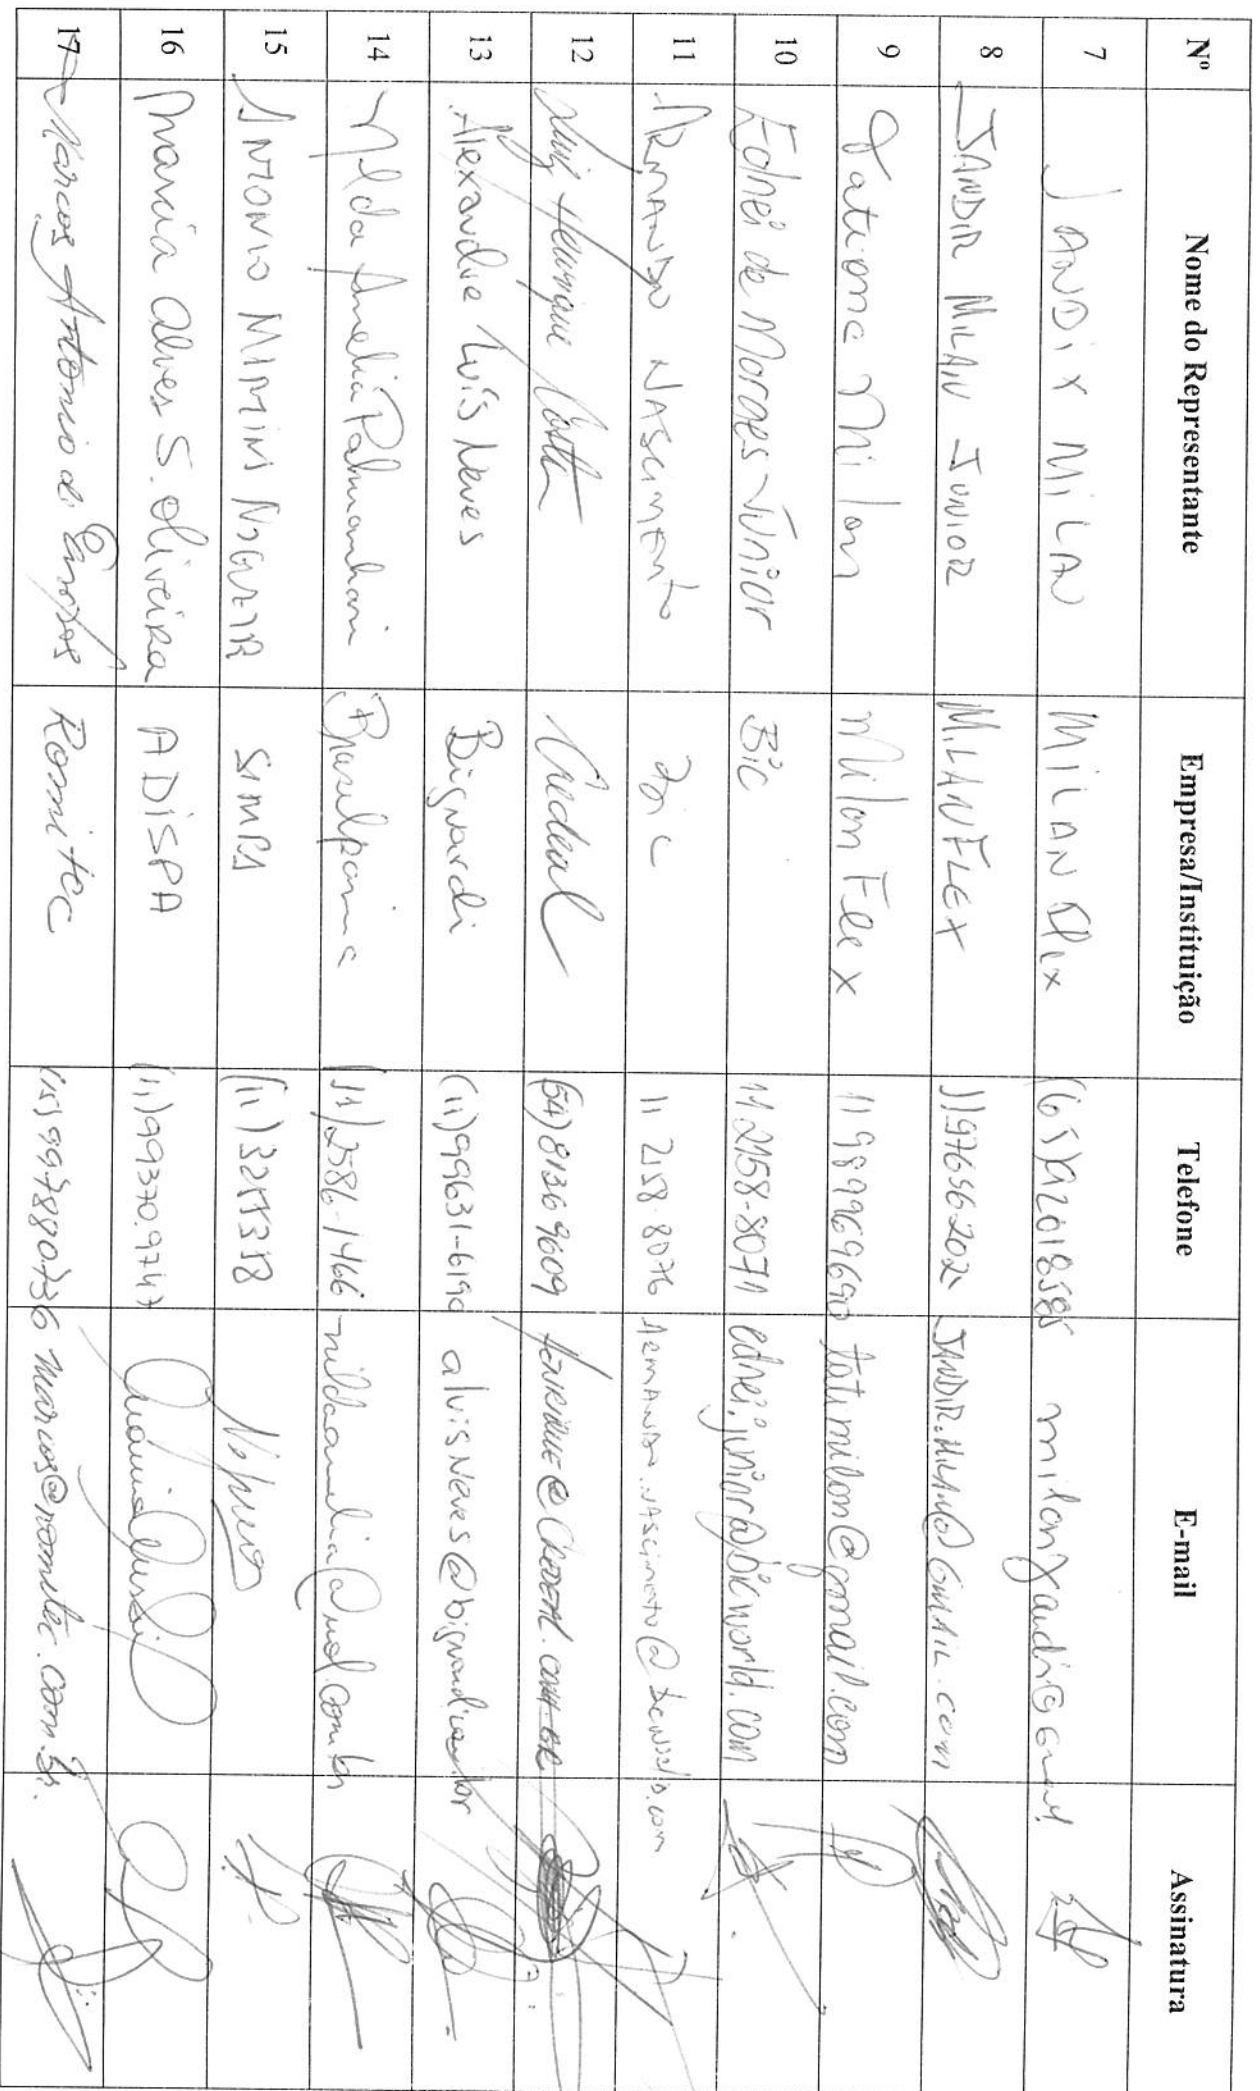 Nº Nome do Representante Empresa/Instituição Telefone E-mail Assinatura
7 JANDIR MILAN MILAN Flex
8 JANDIR MILAN JUNIOR MILANFLEX 11976596202 JANDIR.MILANO@GMAIL.com
9 Tatiana Milan Milan Flex 11989969690 tatimilan@gmail.com
10 Ednei de Moraes Júnior Bic 11.2158-8071 ednei.junior@bicworld.com
11 ARMANDO NASCIMENTO Bic 11 2158.8076 ARMANDO.NASCIMENTO@bicworld.com
12 Luiz Henrique Costa Credeal (54) 81369609 HENRIQUE@CREDEAL.COM.BR
13 Alexandre Luís Neves Bignardi (11)99631-6190
14 Nilda Amelia Palmanhani (11)2586-1466 nildaamelia@uol.com.br
15 ANTONIO MARTINS NOGUEIRA (11)
16 Marcia Alves S. Oliveira ADISPA (11)99370.9747
17 Marcos Antonio de Romitec (15)997880736 marcos@romitec.com.br.